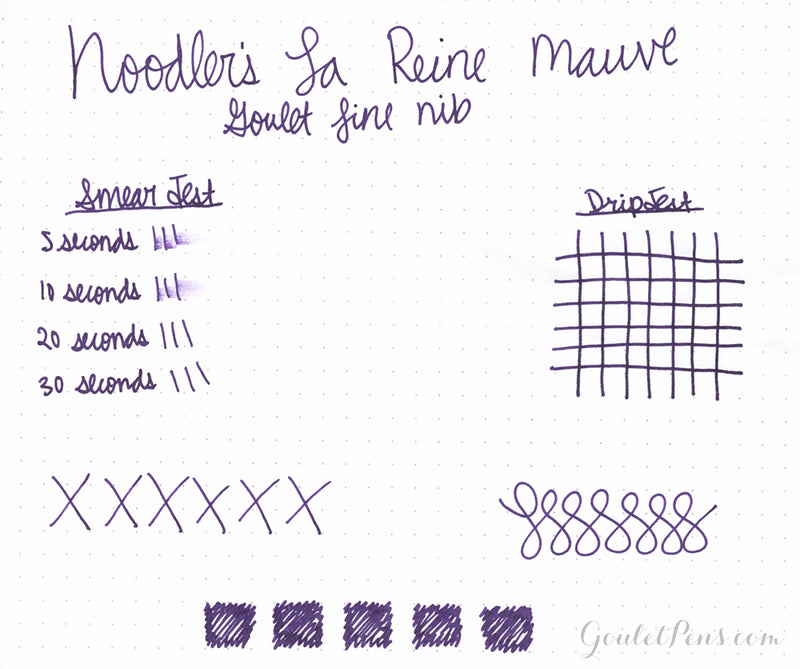 Noodler's La Reine Mauve
Goulet fine nib
Smear Test
5 seconds
10 seconds
20 seconds
30 seconds
Drip Test
X X X X X X
GouletPens.com